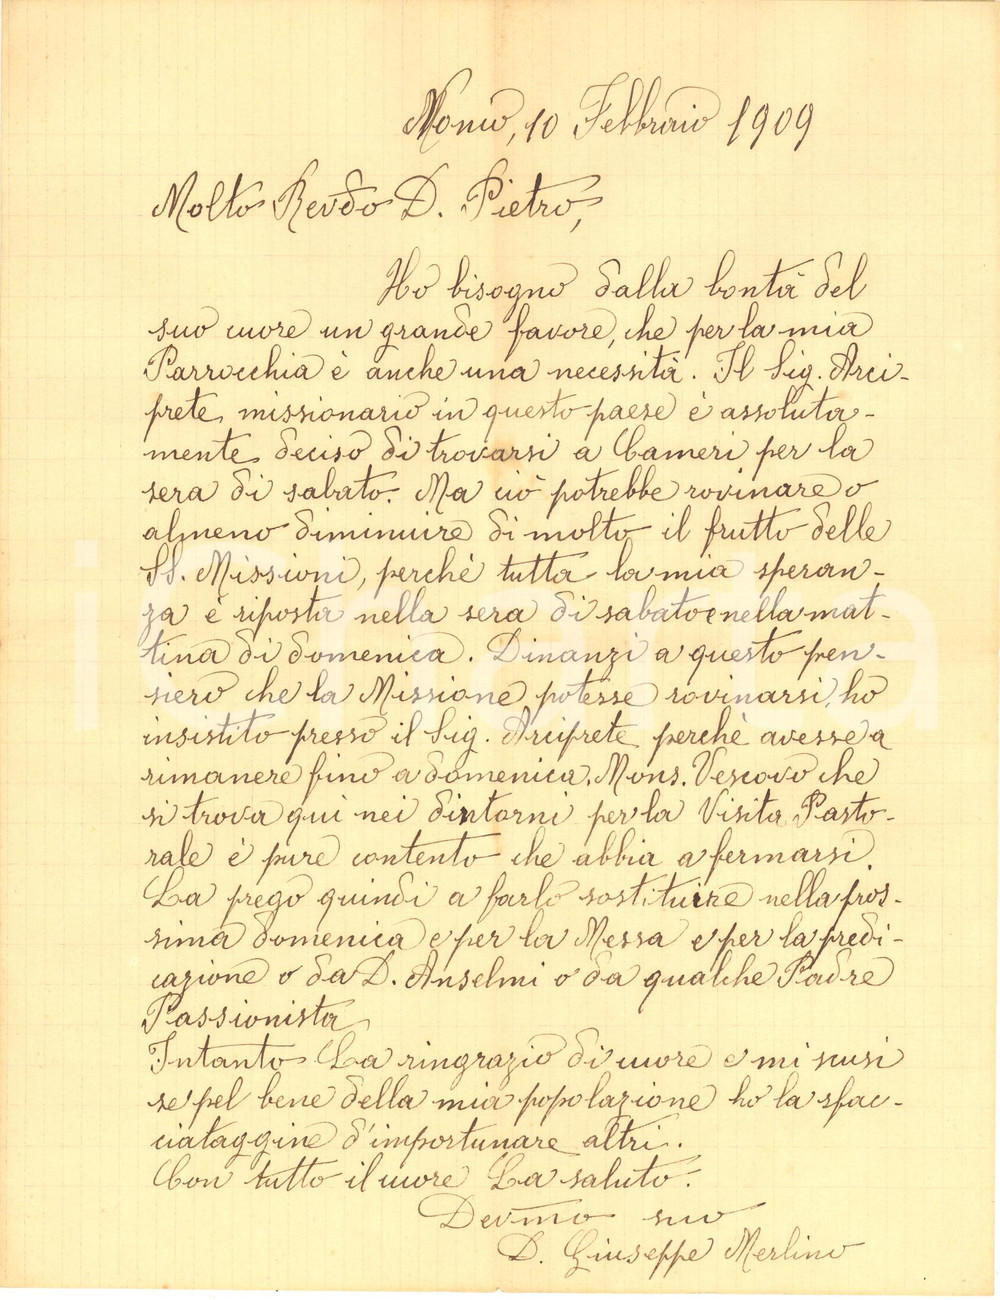 Nonio, 10 Febbraio 1909
Molto Revdo D. Pietro,
Ho bisogno dalla bontà del
suo cuore un grande favore, che per la mia
Parrocchia è anche una necessità. Il Sig. Arci-
prete, missionario in questo paese è assoluta-
mente deciso di trovarsi a Cameri per la
sera di sabato. Ma ciò potrebbe rovinare o
almeno diminuire di molto il frutto delle
SS. Missioni, perchè tutta la mia speran-
za è riposta nella sera di sabato e nella mat-
tina di domenica. Dinanzi a questo pen-
siero che la Missione potesse rovinarsi, ho
insistito presso il Sig. Arciprete perchè avesse a
rimanere fino a domenica. Mons. Vescovo che
si trova qui nei dintorni per la Visita Pasto-
rale è pure contento che abbia a fermarsi.
La prego quindi a farlo sostituire nella pros-
sima domenica e per la Messa e per la predi-
cazione o da D. Anselmi o da qualche Padre
Passionista
Intanto La ringrazio di cuore e mi scusi
se pel bene della mia popolazione ho la sfac-
ciataggine d'importunare altri.
Con tutto il cuore La saluto.
Devmo suo
D. Giuseppe Merlino